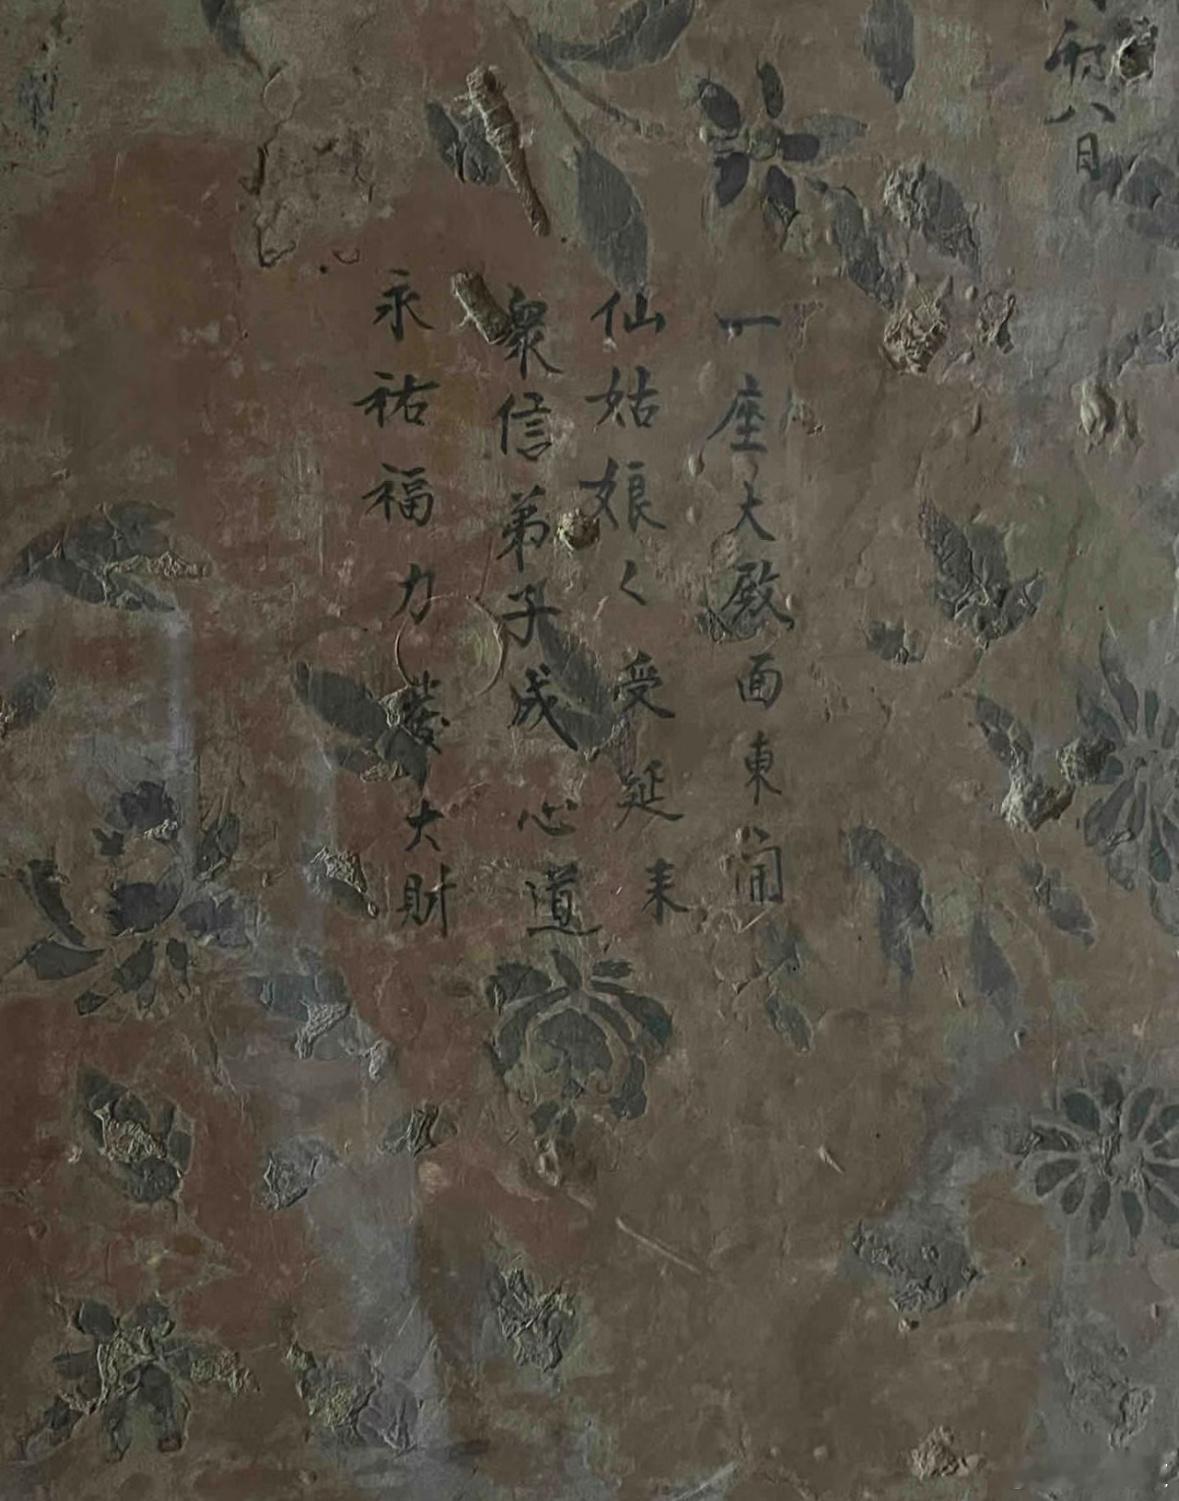 八日
一座大殿面東開
仙姑娘く受延来
衆信弟子成心道
永祐福力發大財